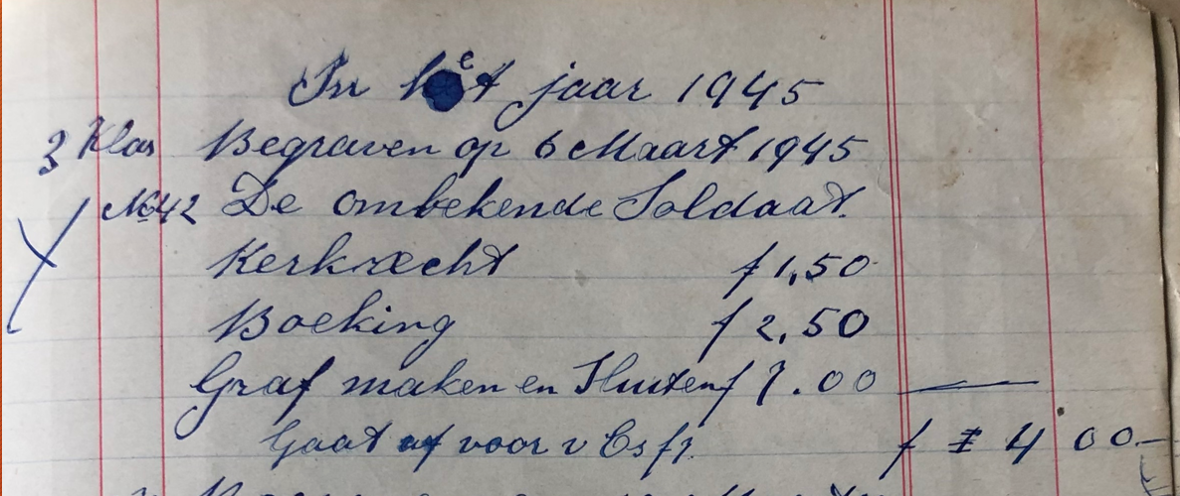 In het jaar 1945
3 Klas Begraven op 6 Maart 1945
No 42 De ombekende Soldaat.
Kerkrecht f 1,50
Boeking f 2,50
Graf maken en Sluiten f 7.00
Gaat af voor v f 7. f 4 00.-